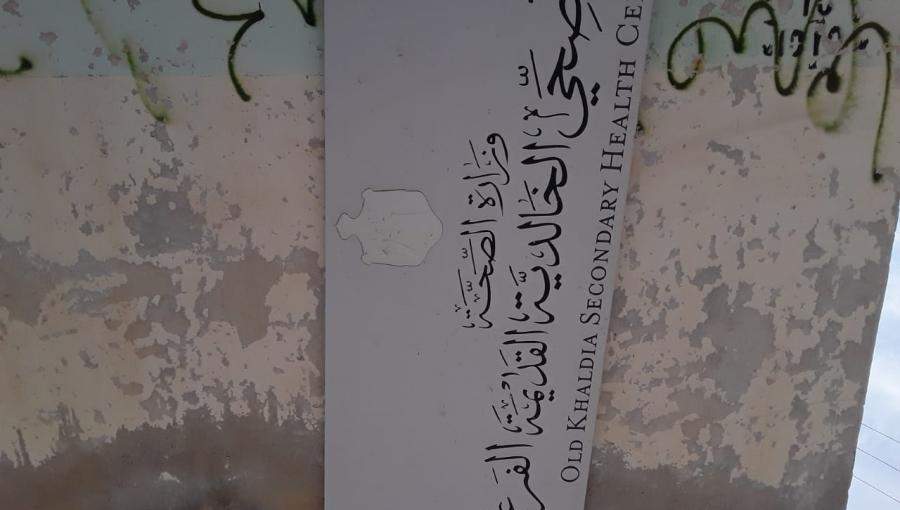 وزارة الصحّة
صحّي الخالديّة القديمة الفر
OLD KHALDIA SECONDARY HEALTH CE